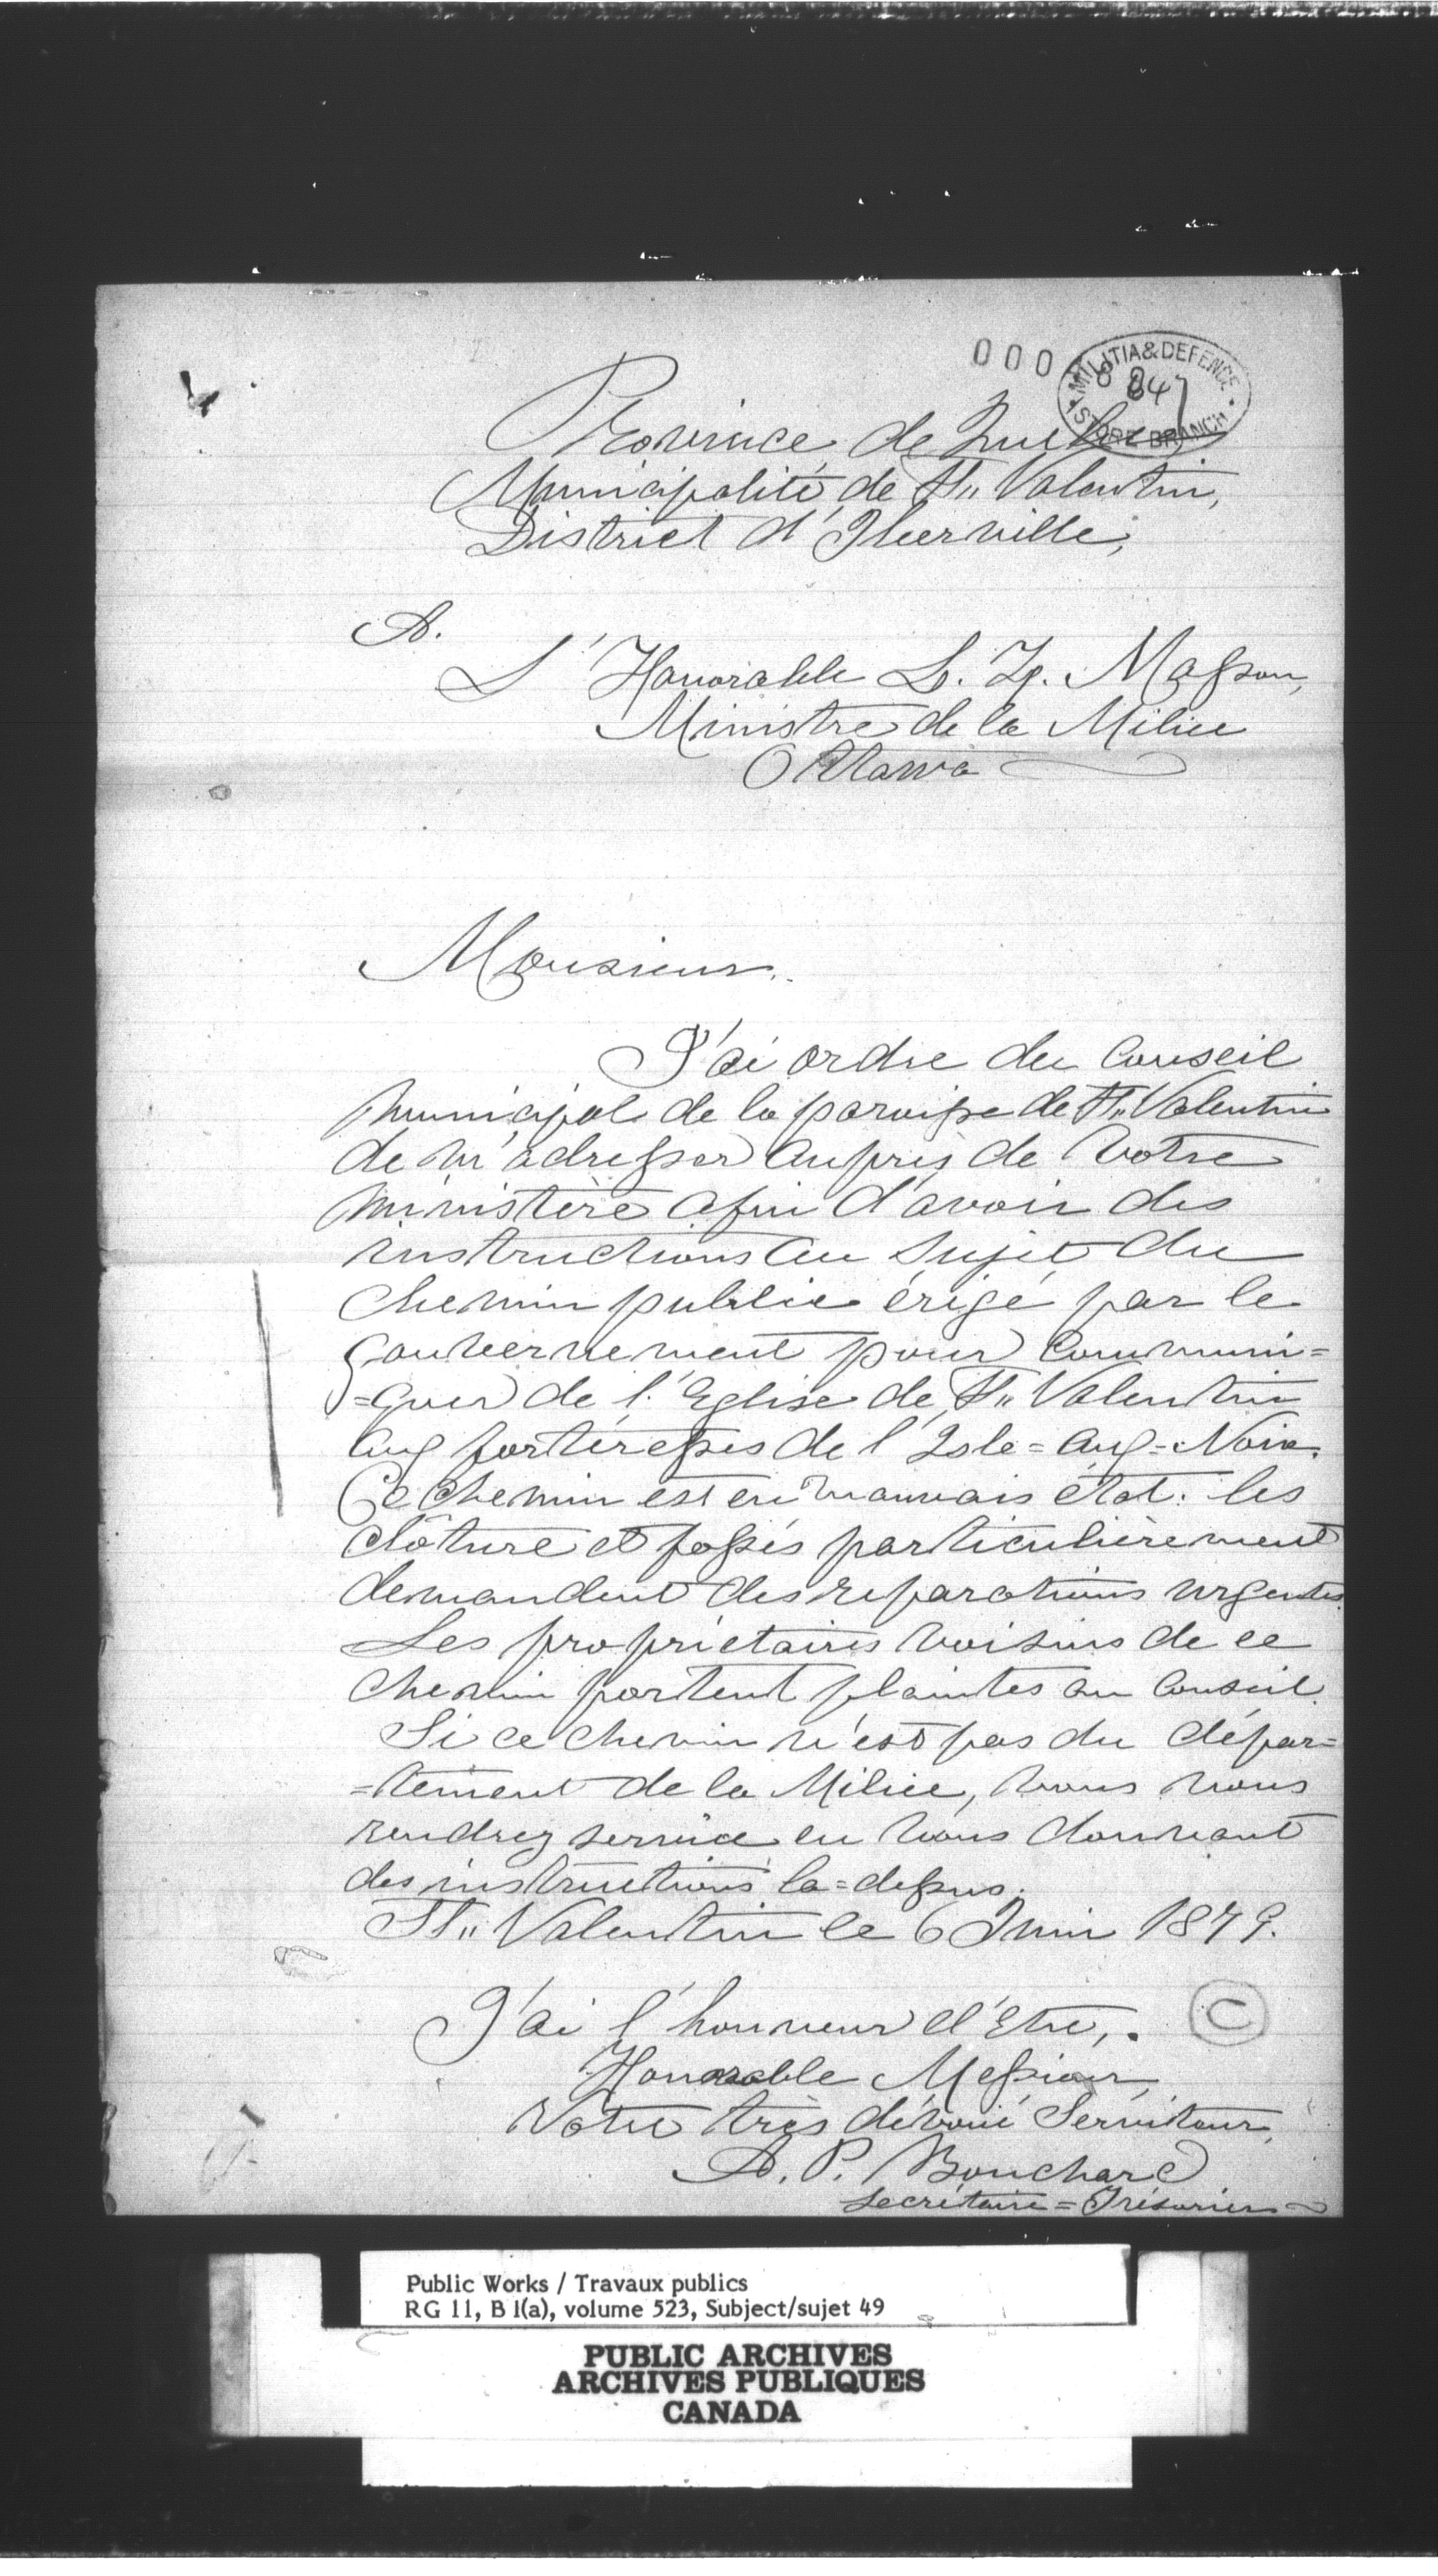 000
MILITIA & DEFENCE
STORE BRANCH
Province de Quebec
Municipalité de St„ Valentin,
District d'Iberville,
A.
L'Honorable L. F. Masson,
Ministre de la Milice
Ottawa
Monsieur.
J'ai ordre du Conseil
Municipal de la paroisse de St„ Valentin
de m'adresser auprès de Votre
Ministère afin d'avoir des
instructions au sujet du
Chemin public érigé par le
gouvernement pour communi=
=quer de l'Eglise de St„ Valentin
aux forteresses de l'Isle=aux=Noix.
Ce chemin est en mauvais état: les
clôture et fossés particulièrement
demandent des reparations urgentes.
Les propriétaires voisins de ce
chemin portent plaintes au Conseil.
Si ce chemin n'est pas du dépar=
=tement de la Milice, vous nous
rendrez service en nous donnant
des instructions la=dessus.
St„ Valentin le 6 Juin 1879.
J'ai l'honneur d'Etre,
C
Honorable Messieur,
Votre très dévoué Serviteur,
A. P. Bouchard
Secrétaire=Trésorier
Public Works / Travaux publics
RG 11, B 1(a), volume 523, Subject/sujet 49
PUBLIC ARCHIVES
ARCHIVES PUBLIQUES
CANADA